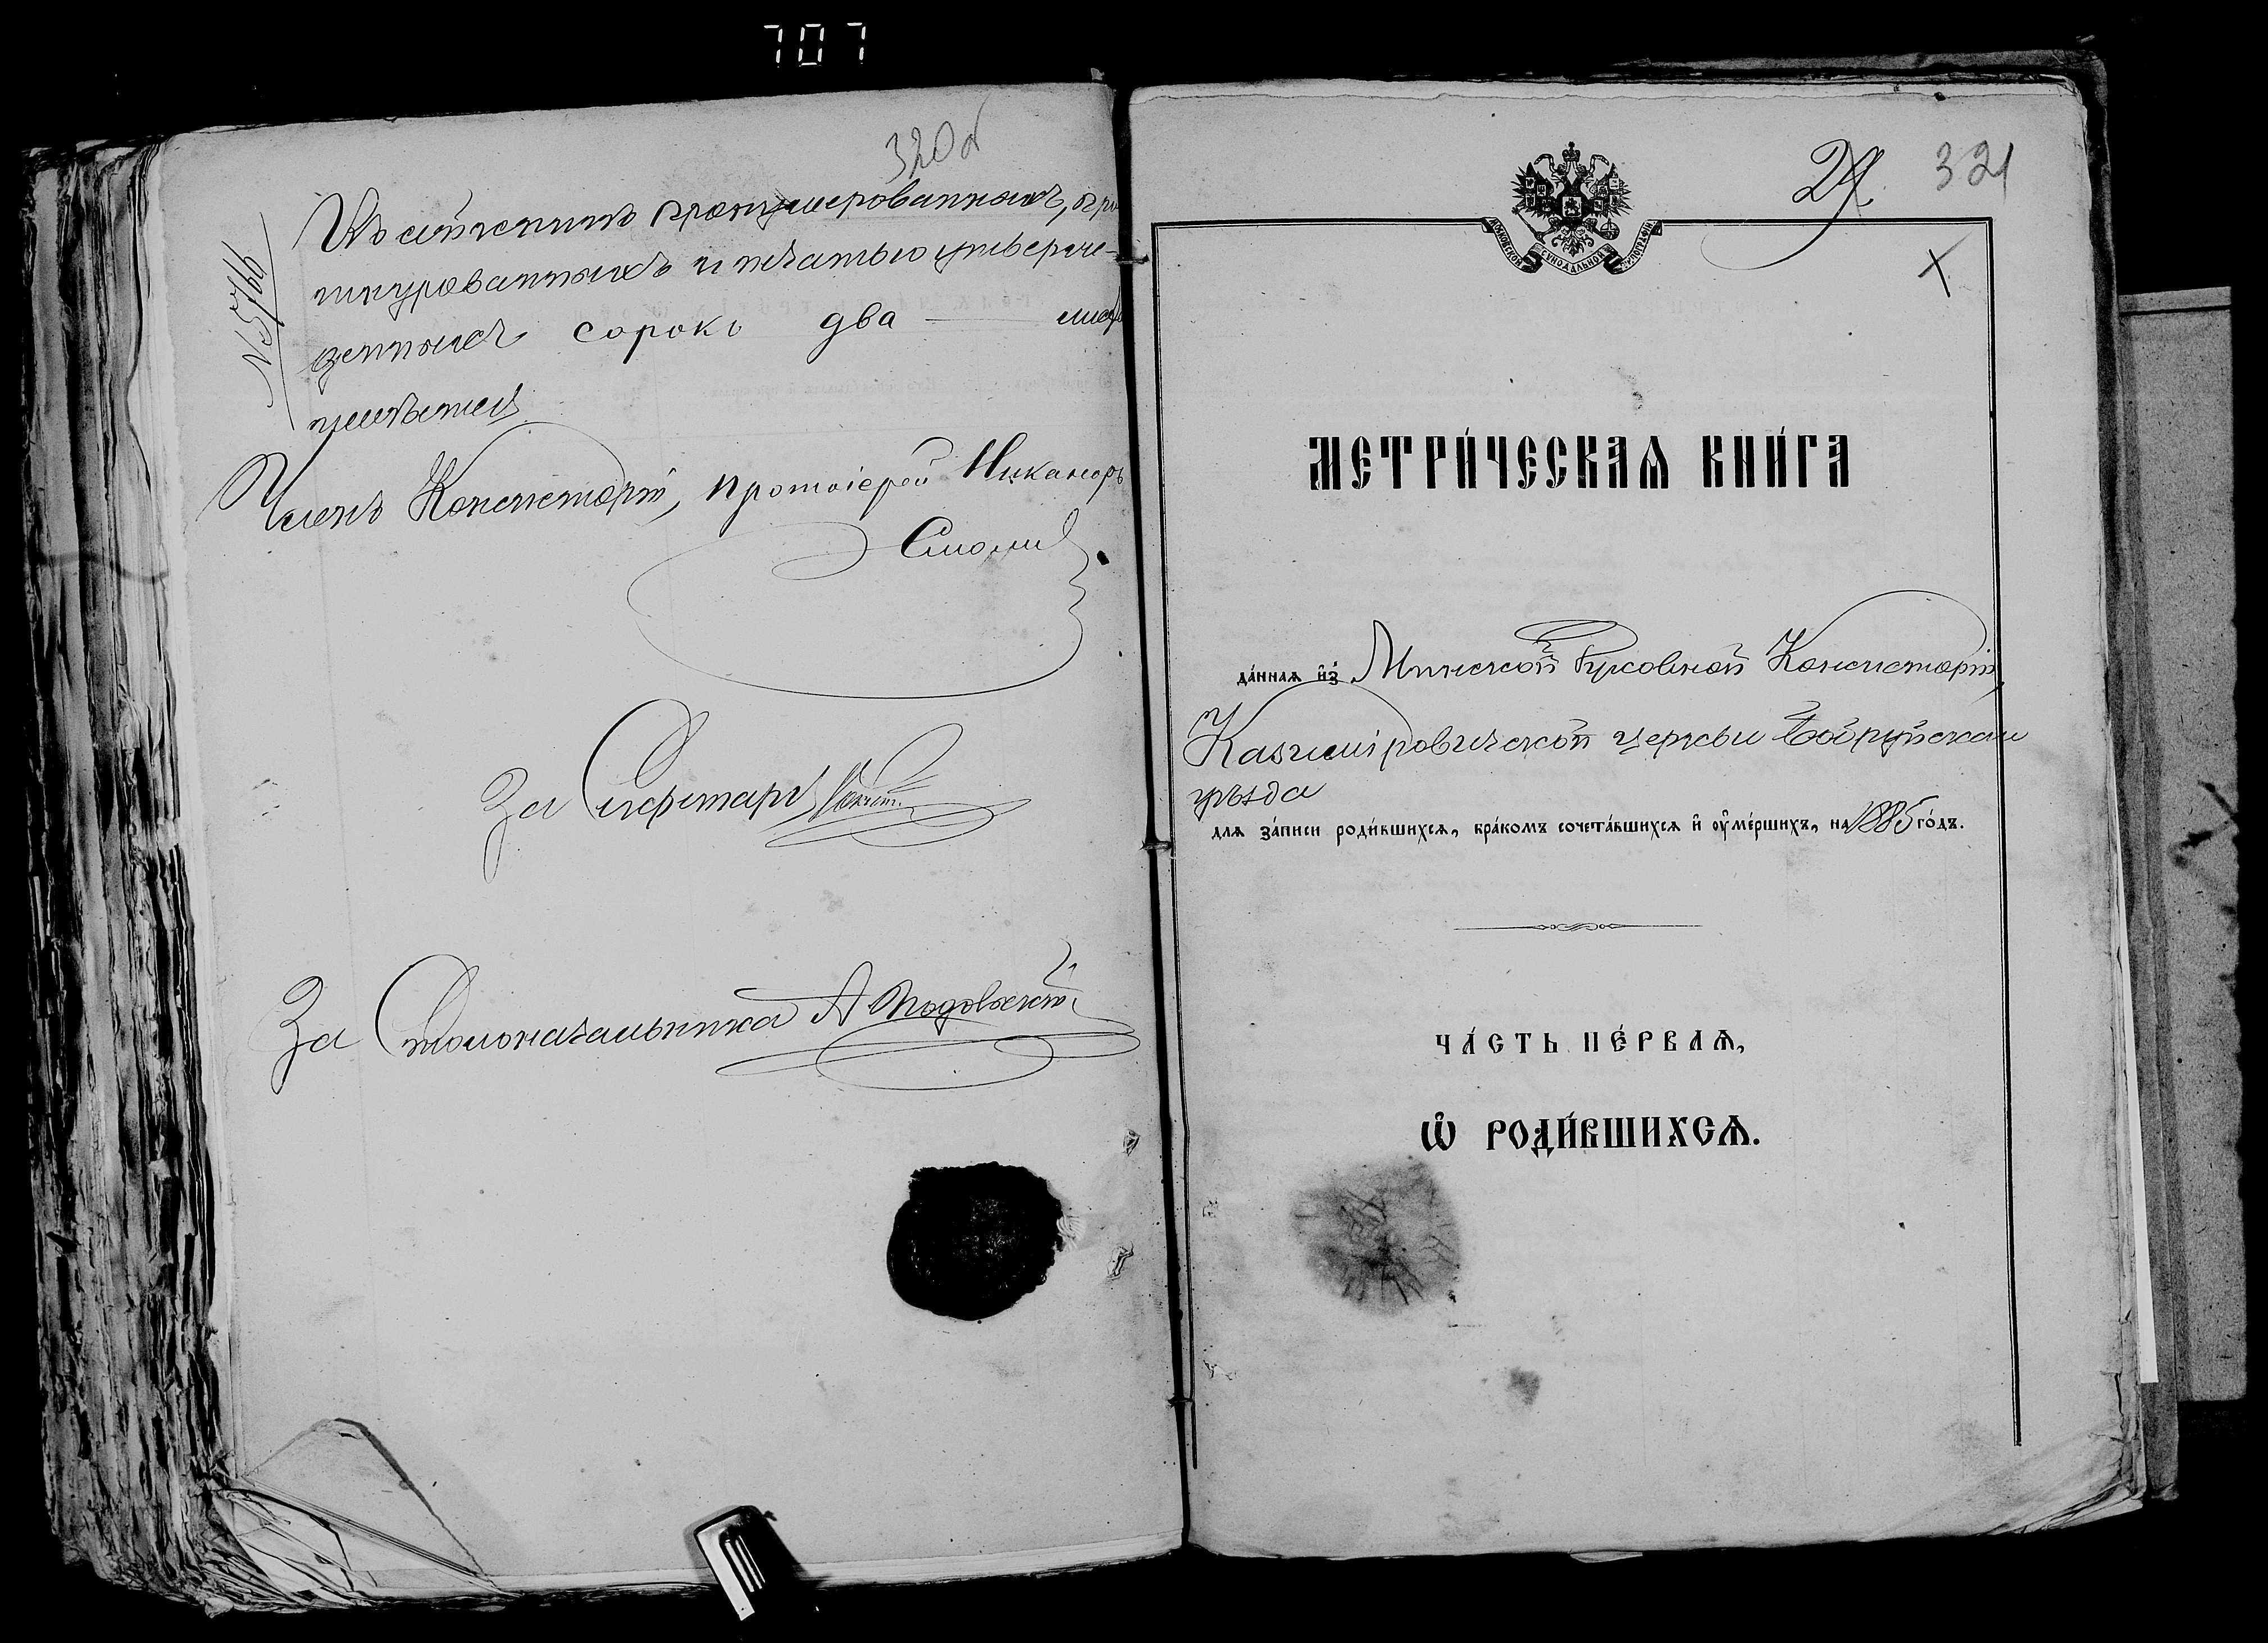 707
320б
№ 5766
Въ сей книгѣ пронумерованныхъ, про
шнурованныхъ и печатью утверж-
денныхъ сорокъ два
Членъ Консисторіи, протоіерей Никаноръ
Смолич
За Секретаря
За Столоначальника А
321
МОСКОВСКОЙ СѴНОДАЛЬНОЙ ТИПОГРАФІИ
X
МЕТРИ́ЧЕСКАѦ КНИ́ГА
да́ннаѧ и҆з̾ Минской Духовной Консисторіи
Казиміровичской церкви Бобруйскаго
уѣзда
длѧ за́писи роди́вшихсѧ, бра́комъ сочета́вшихсѧ и҆ ᲂу҆ме́ршихъ, на 1885 го́дъ.
ЧА́СТЬ ПЕ́РВАѦ,
Ѽ РОДИ́ВШИХСѦ.